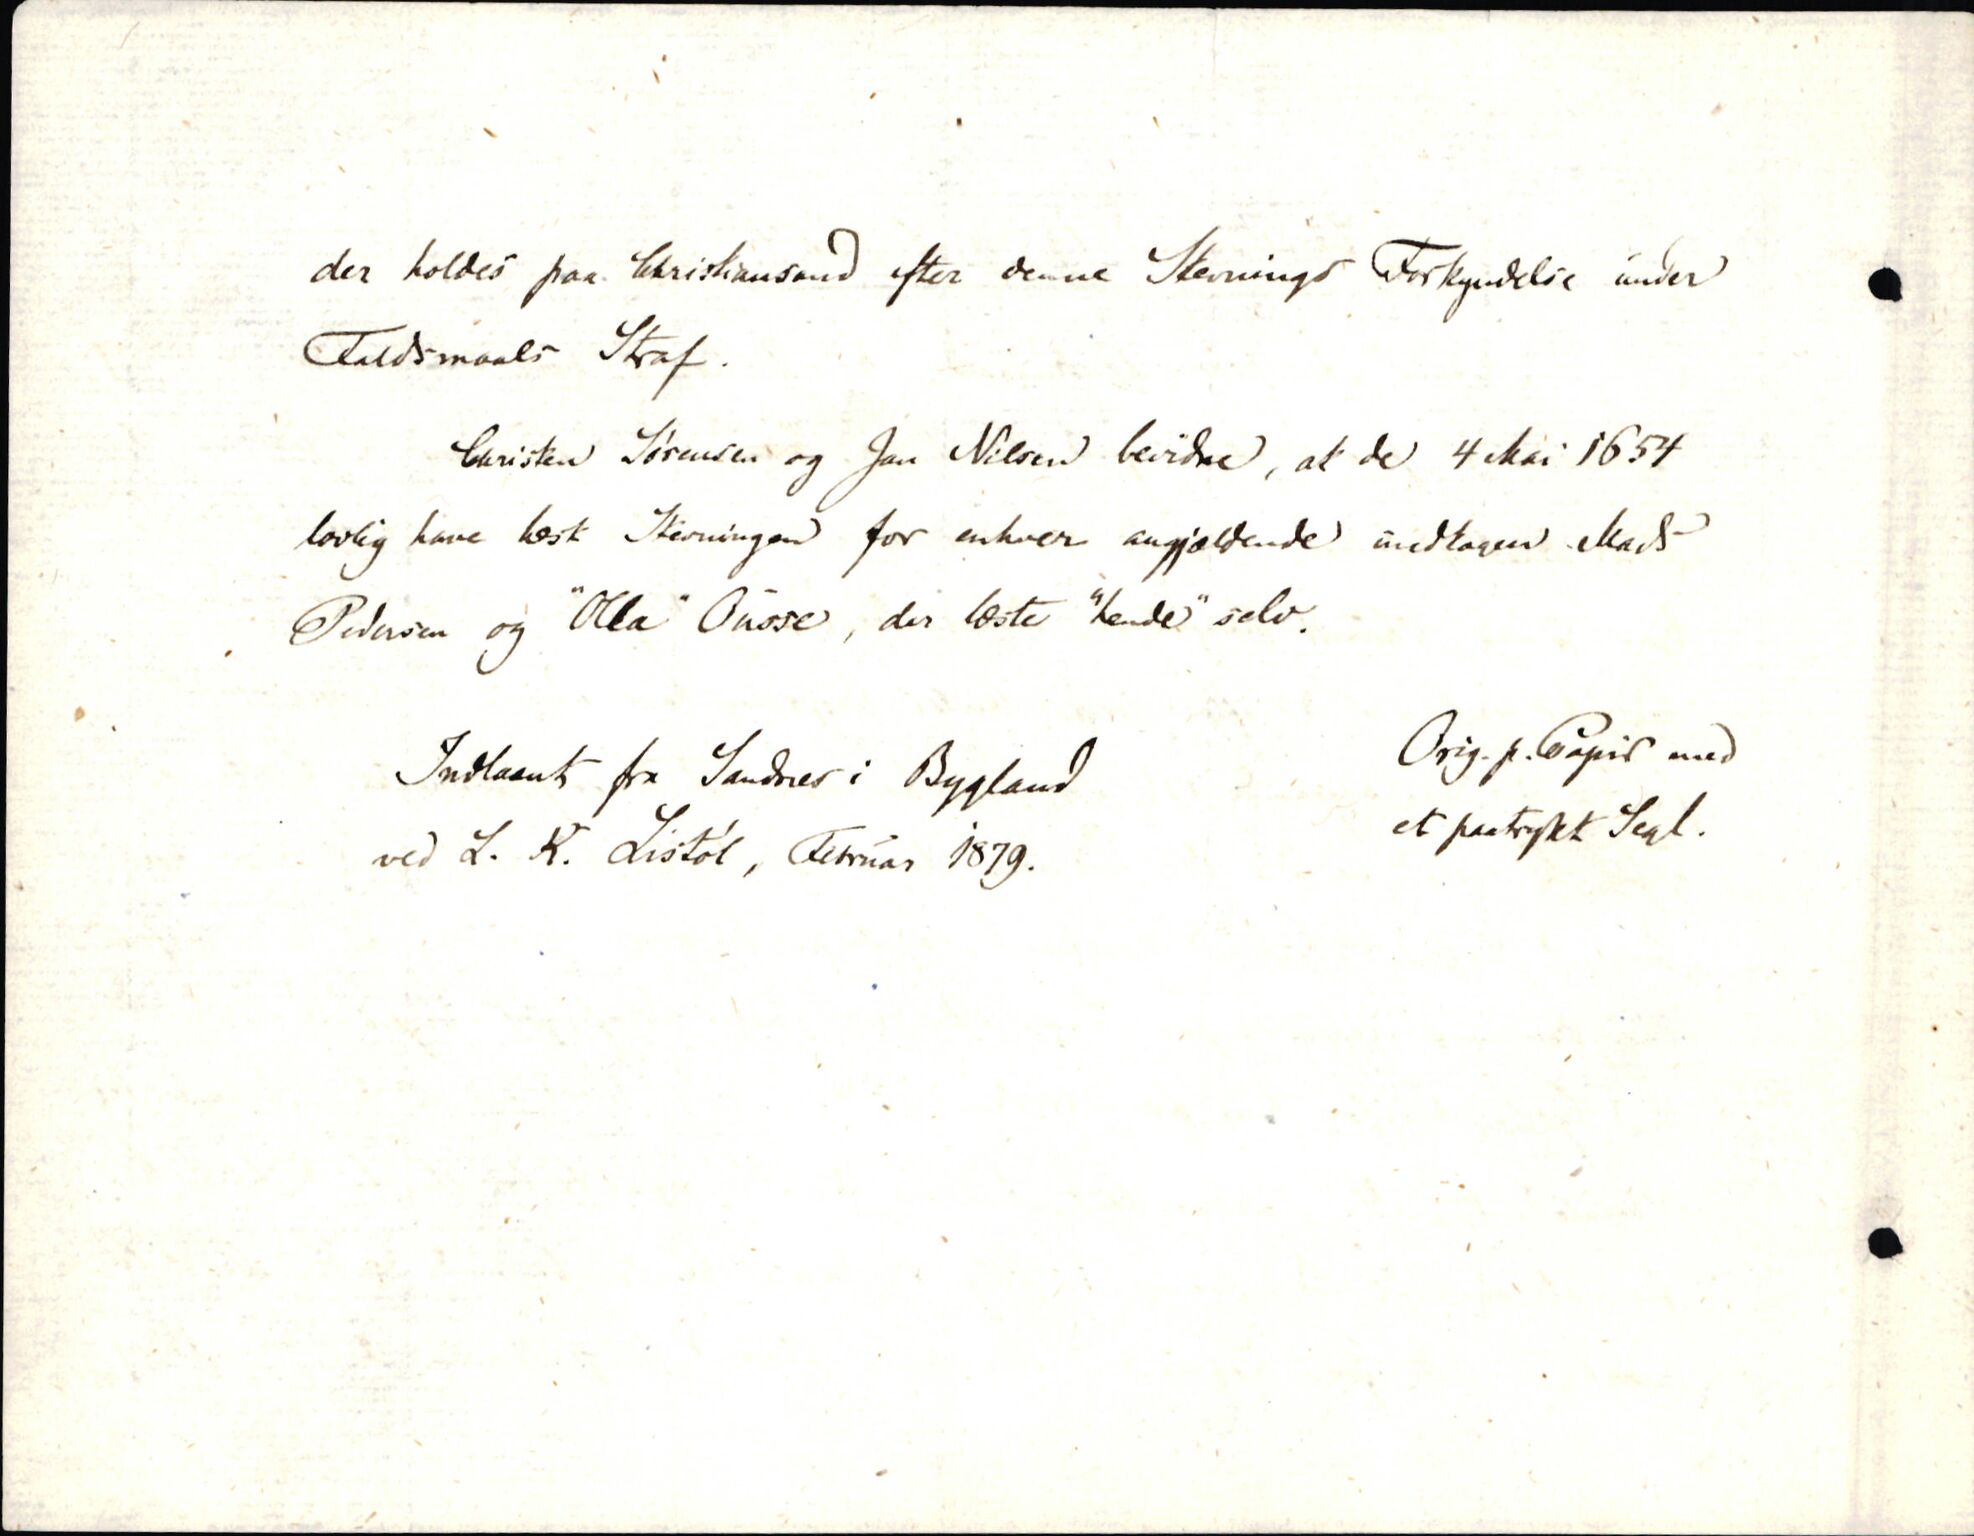 der holdes paa Christiansand efter denne Stevnings Forkyndelse under
Faldsmaals Straf.
Christen Sørensen og Jan Nilsen bevidne, at de 4 Mai 1654
lovlig have læst Stevningen for enhver angjældende undtagen Mads
Pedersen og "Olla" Ousse, der læste "hende" selv.
Indlaant fra Sandnes i Bygland
ved L. K. Listøl, Februar 1879.
Orig. p. Papir med
et paatrykt Segl.